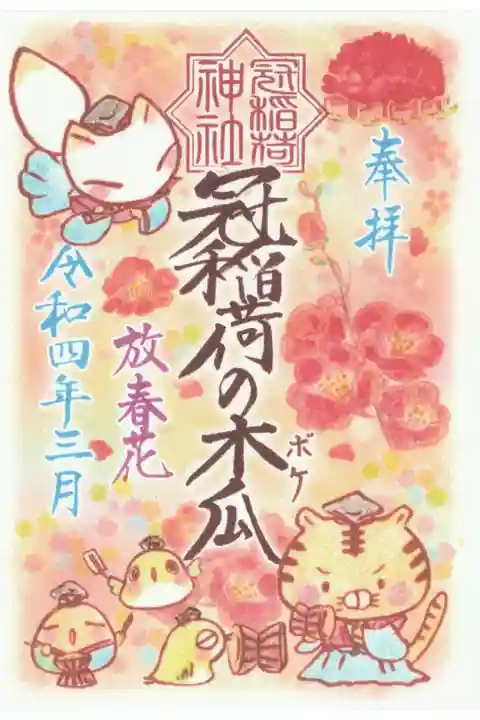 冠稲荷
神社
奉拝
冠稲荷の木瓜
ボケ
放春花
令和四年三月